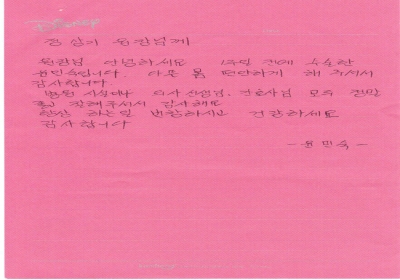 정상기 원장님께
원장님 안녕하세요 1주일 전에 수술한
용민숙입니다. 아픈 몸 편안하게 해 주셔서
감사합니다
병원 시설이나 의사 선생님, 간호사님 모두 친절
잘해주셔서 감사해요
항상 하는일 번창하시고 건강하세요
감사합니다
- 용민숙 -